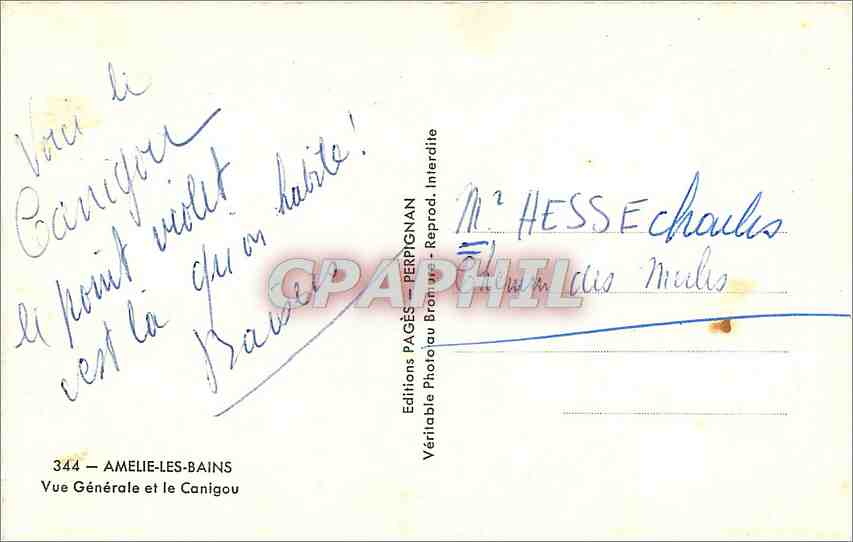 Voici le
Canigou
le point violet
c'est là qu'on habite!
Baisers
344 — AMELIE-LES-BAINS
Vue Générale et le Canigou
Editions PAGÈS — PERPIGNAN
Véritable Photo au Bromure - Reprod. Interdite
CPAPHIL
Mr HESSE Charles
Chemin des Mules